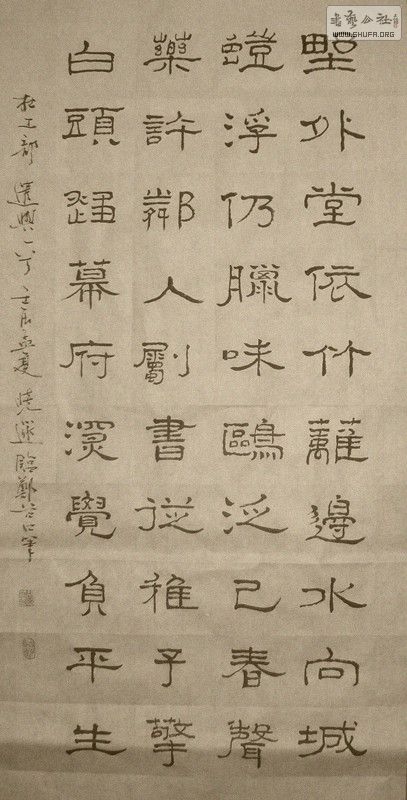 野外堂依竹籬邊水向城
螘浮仍臘味鷗泛已春聲
藥許鄰人劚書從稚子擎
白頭趨幕府深覺負平生
杜工部遣興一首 壬辰孟夏 臨鄭谷口筆
書藝公社
WWW.SHUFA.ORG